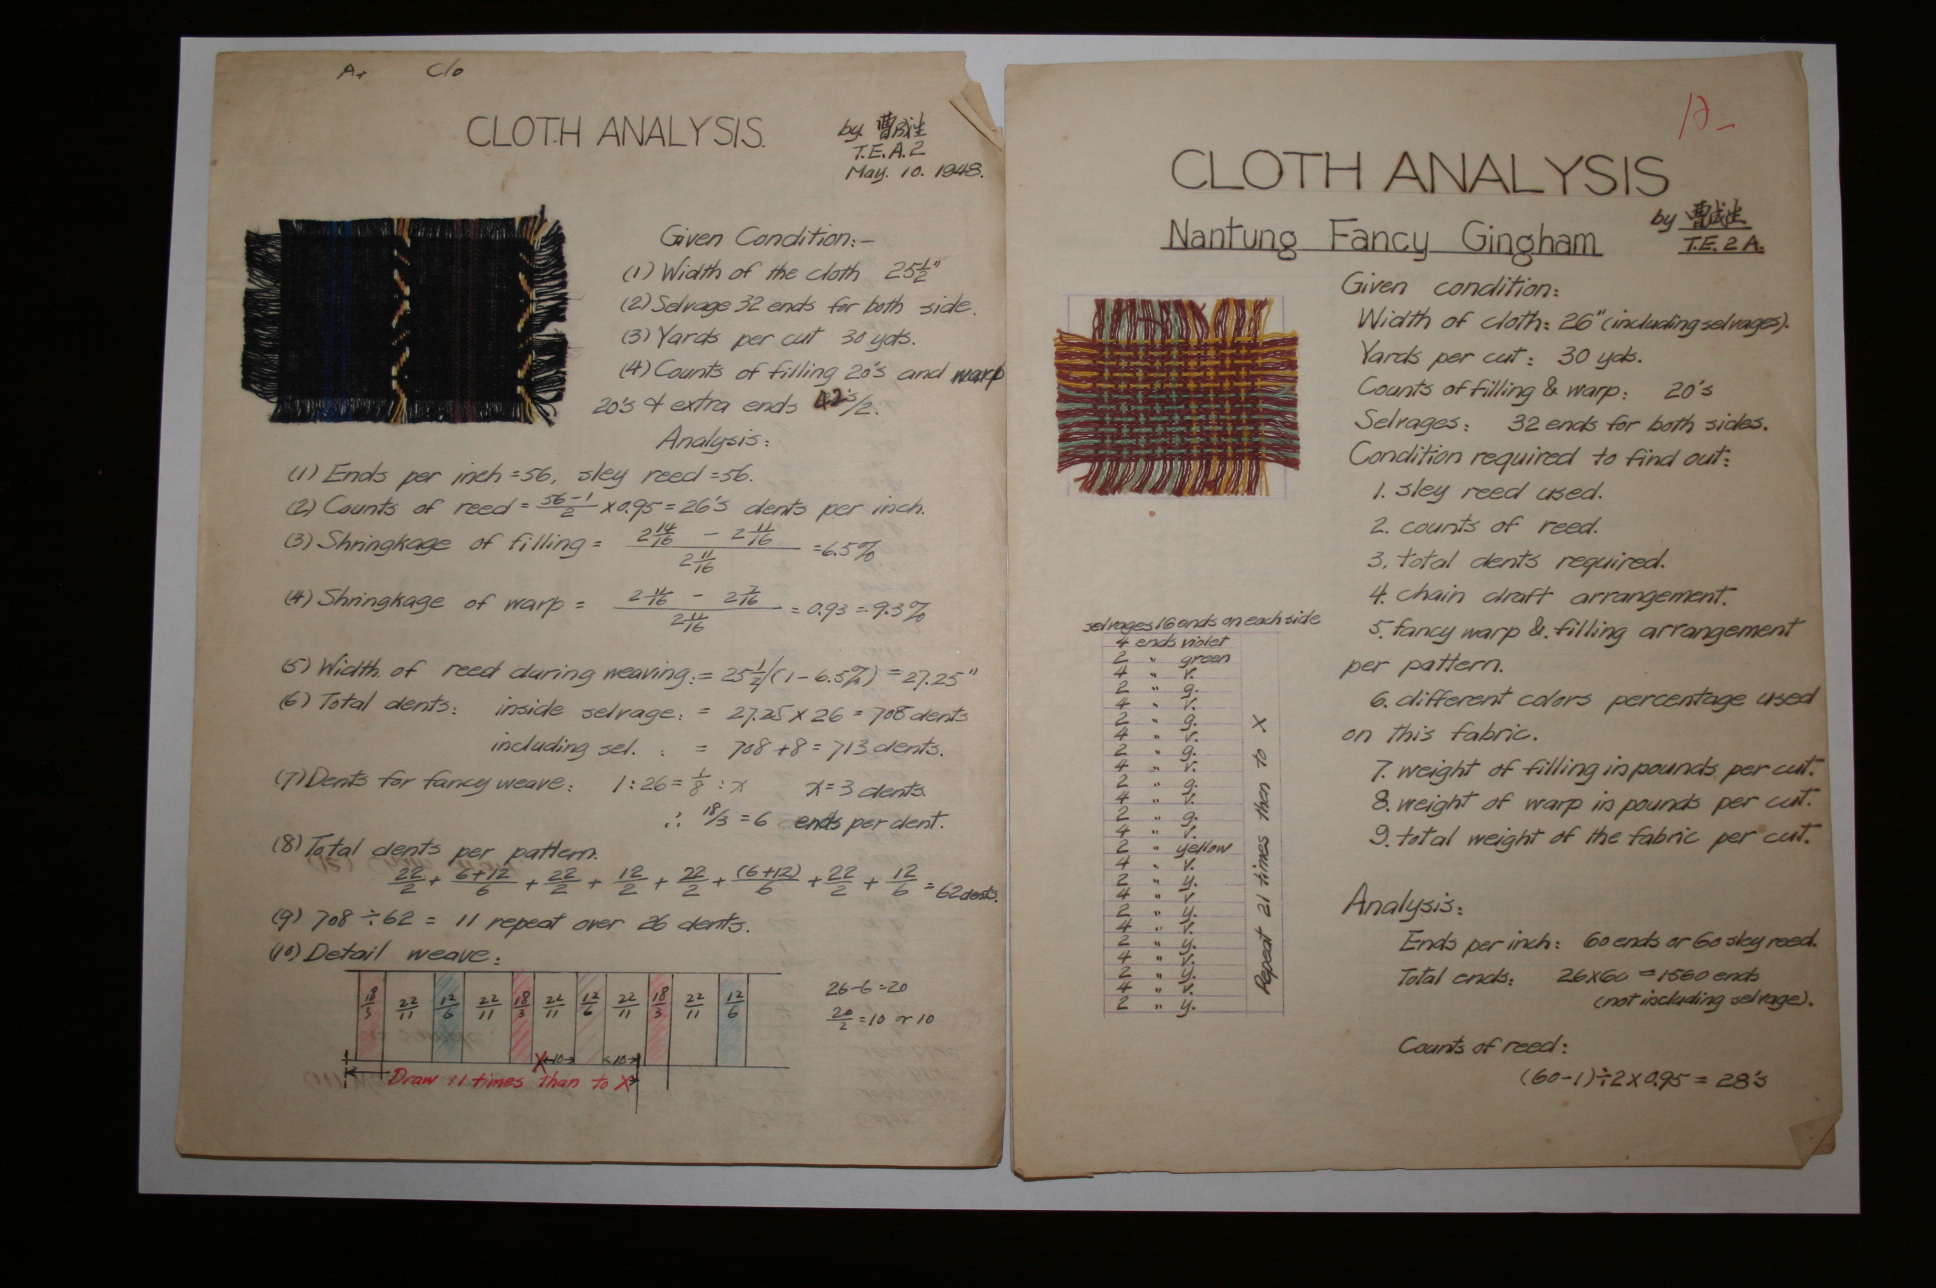 A+ C/o
CLOTH ANALYSIS.
by 曹成生
T.E.A.2
May. 10. 1948.
Given Condition:-
(1) Width of the cloth 25½"
(2) Selvage 32 ends for both side.
(3) Yards per cut 30 yds.
(4) Counts of filling 20's and warp
20's & extra ends 42's/2.
Analysis:
(1) Ends per inch = 56, sley reed = 56.
(2) Counts of reed = 56-1/2 x 0.95 = 26's dents per inch.
(3) Shringkage of filling = (2 14/16 - 2 11/16) / 2 11/16 = 6.5%
(4) Shringkage of warp = (2 11/16 - 2 7/16) / 2 11/16 = 0.93 = 9.3%
(5) Width of reed during weaving: = 25½/(1-6.5%) = 27.25"
(6) Total dents: inside selvage: = 27.25 x 26 = 708 dents
including sel. : = 708 + 8 = 713 dents.
(7) Dents for fancy weave: 1:26 = 1/8 : x x = 3 dents.
∴ 18/3 = 6 ends per dent.
(8) Total dents per pattern.
22/2 + 6+12/6 + 22/2 + 12/2 + 22/2 + (6+12)/6 + 22/2 + 12/6 = 62 dents.
(9) 708 ÷ 62 = 11 repeat over 26 dents.
(10) Detail weave:
18/3 22/11 12/6 22/11 18/3 22/11 12/6 22/11 18/3 22/11 12/6
26-6 = 20
20/2 = 10 or 10
X 10 10
Draw 11 times than to X
12-
CLOTH ANALYSIS
Nantung Fancy Gingham
by 曹成生
T.E.2 A.
Given condition:
Width of cloth: 26" (including selvages).
Yards per cut: 30 yds.
Counts of filling & warp: 20's
Selvages: 32 ends for both sides.
Condition required to find out:
1. sley reed used.
2. counts of reed.
3. total dents required.
4. chain draft arrangement.
5. fancy warp & filling arrangement
per pattern.
6. different colors percentage used
on this fabric.
7. weight of filling in pounds per cut.
8. weight of warp in pounds per cut.
9. total weight of the fabric per cut.
Analysis:
Ends per inch: 60 ends or 60 sley reed.
Total ends: 26x60 = 1560 ends
(not including selvage).
Counts of reed:
(60-1)÷2x0.95 = 28's
selvages 16 ends on each side
4 ends violet
2 " green
4 " v.
2 " g.
4 " v.
2 " g.
4 " v.
2 " g.
4 " v.
2 " g.
4 " v.
2 " g.
4 " v.
2 " yellow
4 " v.
2 " y.
4 " v.
2 " y.
4 " v.
2 " y.
4 " v.
2 " y.
4 " v.
2 " y.
Repeat 21 times then to X